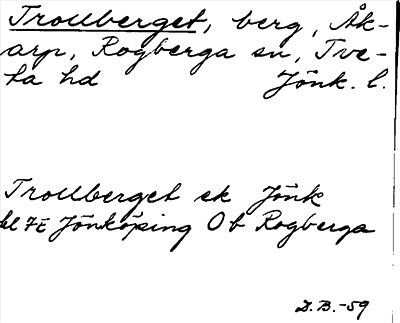 Trollberget, berg, Åk-
arp, Rogberga sn, Tve-
ta hd Jönk. l.
Trollberget ek Jönk
bl 7E Jönköping Ob Rogberga
D.B.-59